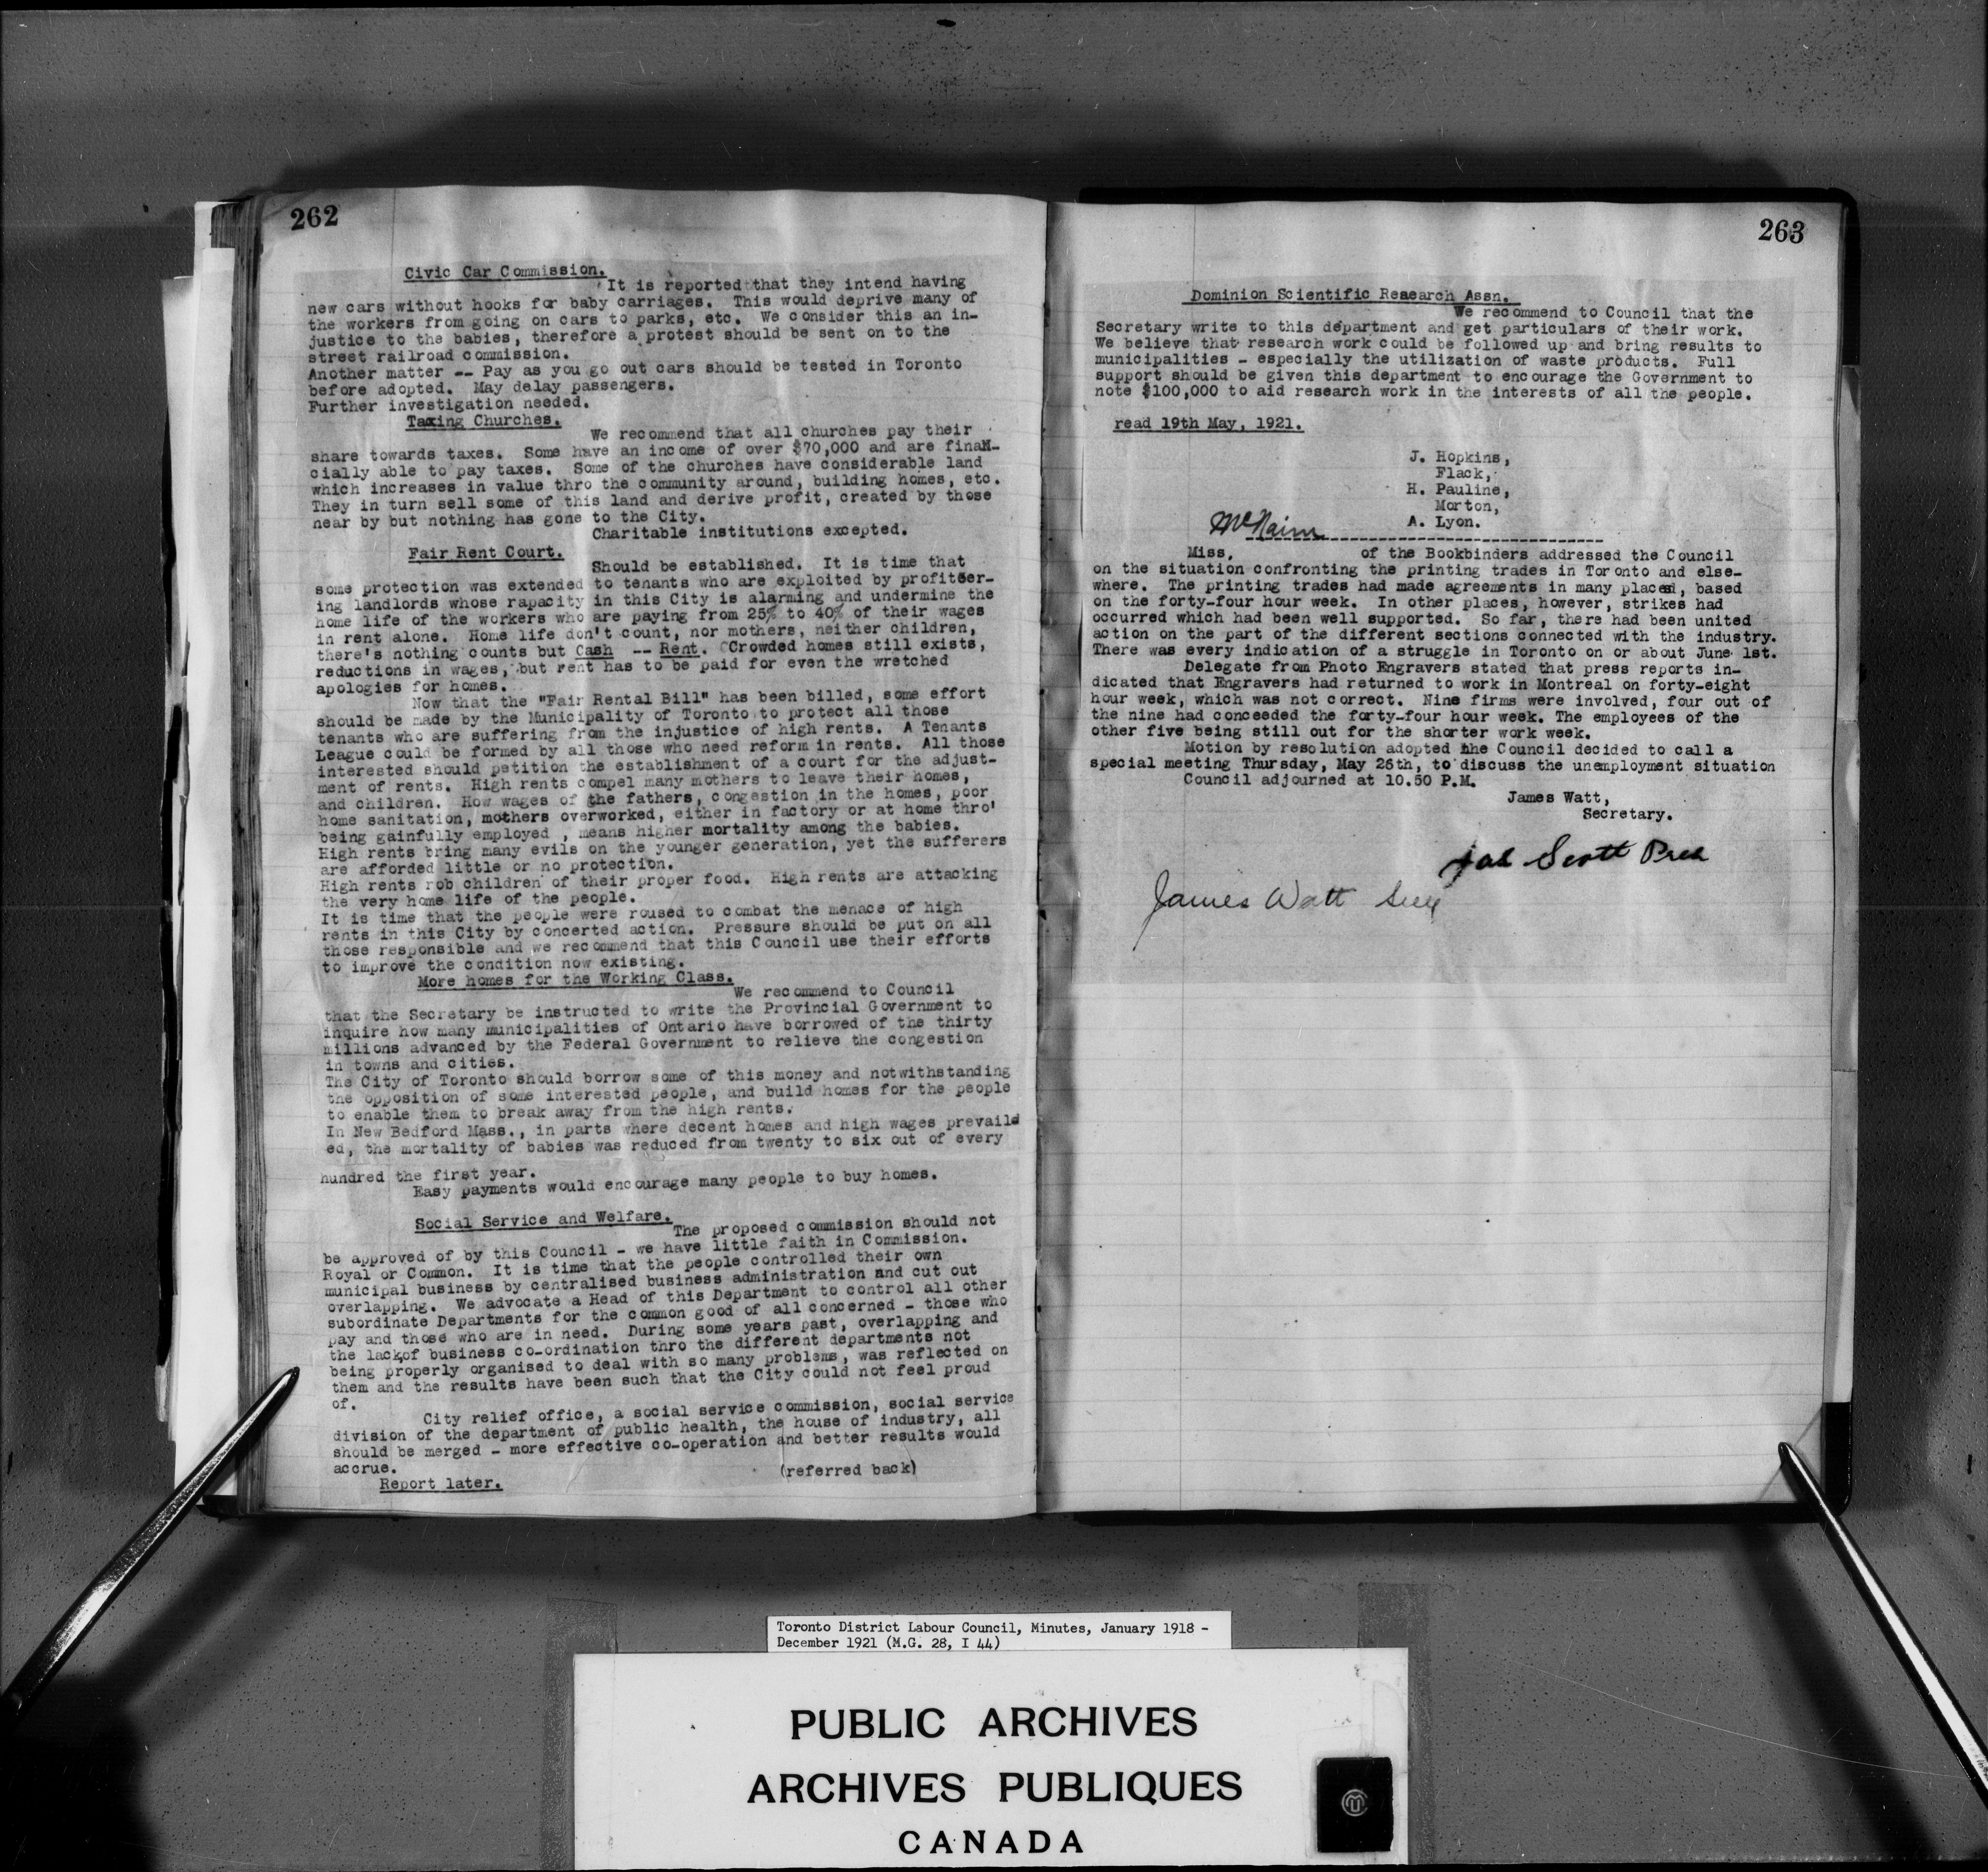 262
Civic Car Commission.
It is reported that they intend having
new cars without hooks for baby carriages. This would deprive many of
the workers from going on cars to parks, etc. We consider this an in-
justice to the babies, therefore a protest should be sent on to the
street railroad commission.
Another matter -- Pay as you go out cars should be tested in Toronto
before adopted. May delay passengers.
Further investigation needed.
Taxing Churches.
We recommend that all churches pay their
share towards taxes. Some have an income of over $70,000 and are finan-
cially able to pay taxes. Some of the churches have considerable land
which increases in value thro the community around, building homes, etc.
They in turn sell some of this land and derive profit, created by those
near by but nothing has gone to the City.
Charitable institutions excepted.
Fair Rent Court.
Should be established. It is time that
some protection was extended to tenants who are exploited by profiteer-
ing landlords whose rapacity in this City is alarming and undermine the
home life of the workers who are paying from 25% to 40% of their wages
in rent alone. Home life don't count, nor mothers, neither children,
there's nothing counts but Cash -- Rent. Crowded homes still exists,
reductions in wages, but rent has to be paid for even the wretched
apologies for homes.
Now that the "Fair Rental Bill" has been billed, some effort
should be made by the Municipality of Toronto to protect all those
tenants who are suffering from the injustice of high rents. A Tenants
League could be formed by all those who need reform in rents. All those
interested should petition the establishment of a court for the adjust-
ment of rents. High rents compel many mothers to leave their homes,
and children. How wages of the fathers, congestion in the homes, poor
home sanitation, mothers overworked, either in factory or at home thro'
being gainfully employed , means higher mortality among the babies.
High rents bring many evils on the younger generation, yet the sufferers
are afforded little or no protection.
High rents rob children of their proper food. High rents are attacking
the very home life of the people.
It is time that the people were roused to combat the menace of high
rents in this City by concerted action. Pressure should be put on all
those responsible and we recommend that this Council use their efforts
to improve the condition now existing.
More homes for the Working Class.
We recommend to Council
that the Secretary be instructed to write the Provincial Government to
inquire how many municipalities of Ontario have borrowed of the thirty
millions advanced by the Federal Government to relieve the congestion
in towns and cities.
The City of Toronto should borrow some of this money and notwithstanding
the opposition of some interested people, and build homes for the people
to enable them to break away from the high rents.
In New Bedford Mass., in parts where decent homes and high wages prevaild
ed, the mortality of babies was reduced from twenty to six out of every
hundred the first year.
Easy payments would encourage many people to buy homes.
Social Service and Welfare.
The proposed commission should not
be approved of by this Council - we have little faith in Commission.
Royal or Common. It is time that the people controlled their own
municipal business by centralised business administration and cut out
overlapping. We advocate a Head of this Department to control all other
subordinate Departments for the common good of all concerned - those who
pay and those who are in need. During some years past, overlapping and
the lack of business co-ordination thro the different departments not
being properly organised to deal with so many problems, was reflected on
them and the results have been such that the City could not feel proud
of.
City relief office, a social service commission, social service
division of the department of public health, the house of industry, all
should be merged - more effective co-operation and better results would
accrue.
(referred back)
Report later.
263
Dominion Scientific Reaearch Assn.
We recommend to Council that the
Secretary write to this department and get particulars of their work.
We believe that research work could be followed up and bring results to
municipalities - especially the utilization of waste products. Full
support should be given this department to encourage the Government to
note $100,000 to aid research work in the interests of all the people.
read 19th May, 1921.
J. Hopkins,
Flack,
H. Pauline,
Morton,
A. Lyon.
McNairn
Miss. of the Bookbinders addressed the Council
on the situation confronting the printing trades in Toronto and else-
where. The printing trades had made agreements in many places, based
on the forty-four hour week. In other places, however, strikes had
occurred which had been well supported. So far, there had been united
action on the part of the different sections connected with the industry.
There was every indication of a struggle in Toronto on or about June 1st.
Delegate from Photo Engravers stated that press reports in-
dicated that Engravers had returned to work in Montreal on forty-eight
hour week, which was not correct. Nine firms were involved, four out of
the nine had conceeded the forty-four hour week. The employees of the
other five being still out for the shorter work week.
Motion by resolution adopted the Council decided to call a
special meeting Thursday, May 26th, to discuss the unemployment situation
Council adjourned at 10.50 P.M.
James Watt,
Secretary.
Jas Scott Pres
James Watt Secy
Toronto District Labour Council, Minutes, January 1918 -
December 1921 (M.G. 28, I 44)
PUBLIC ARCHIVES
ARCHIVES PUBLIQUES
CANADA